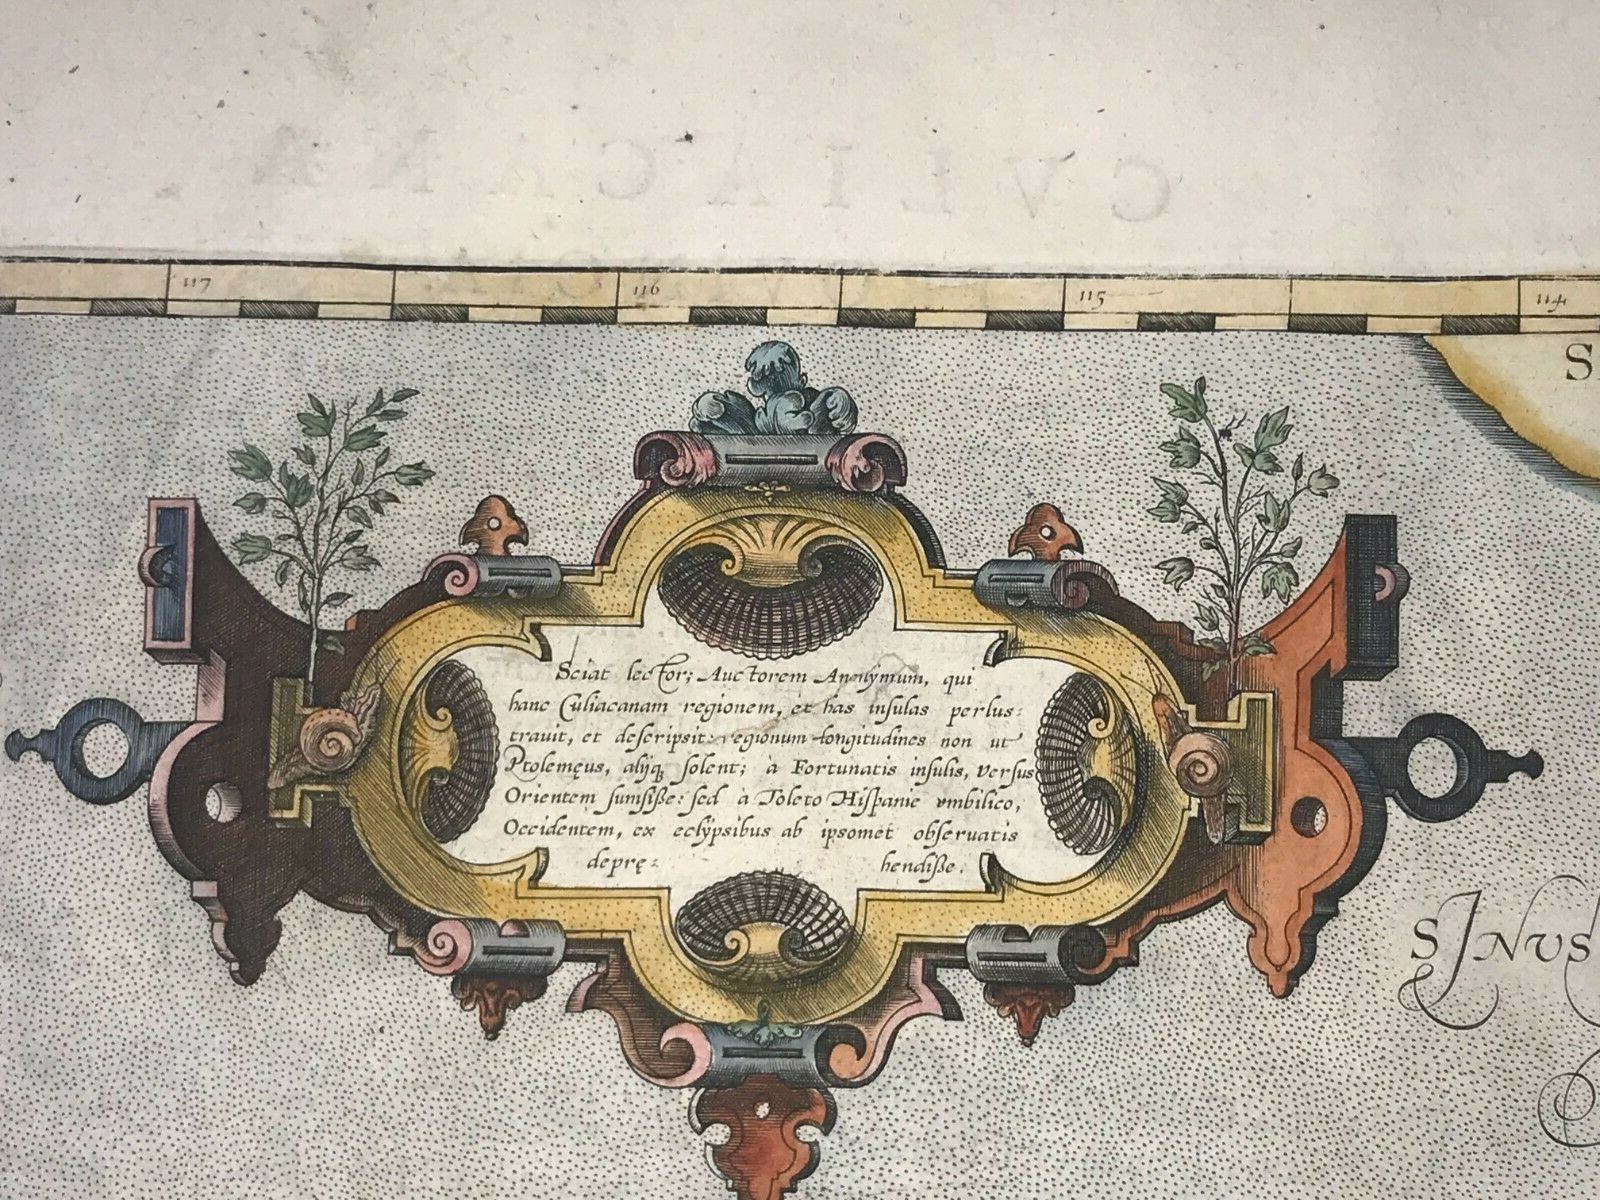 CVLIACANA
117 116 115 114
S
Sciat lector; Auctorem Anonymum, qui
hanc Culiacanam regionem, et has insulas perlus:
trauit, et descripsit: regionum longitudines non ut
Ptolemęus, alijq solent; à Fortunatis insulis, versus
Orientem sumsiße: sed à Toleto Hispanie vmbilico,
Occidentem, ex eclÿpsibus ab ipsomet obseruatis
deprę: hendiße.
SINVS